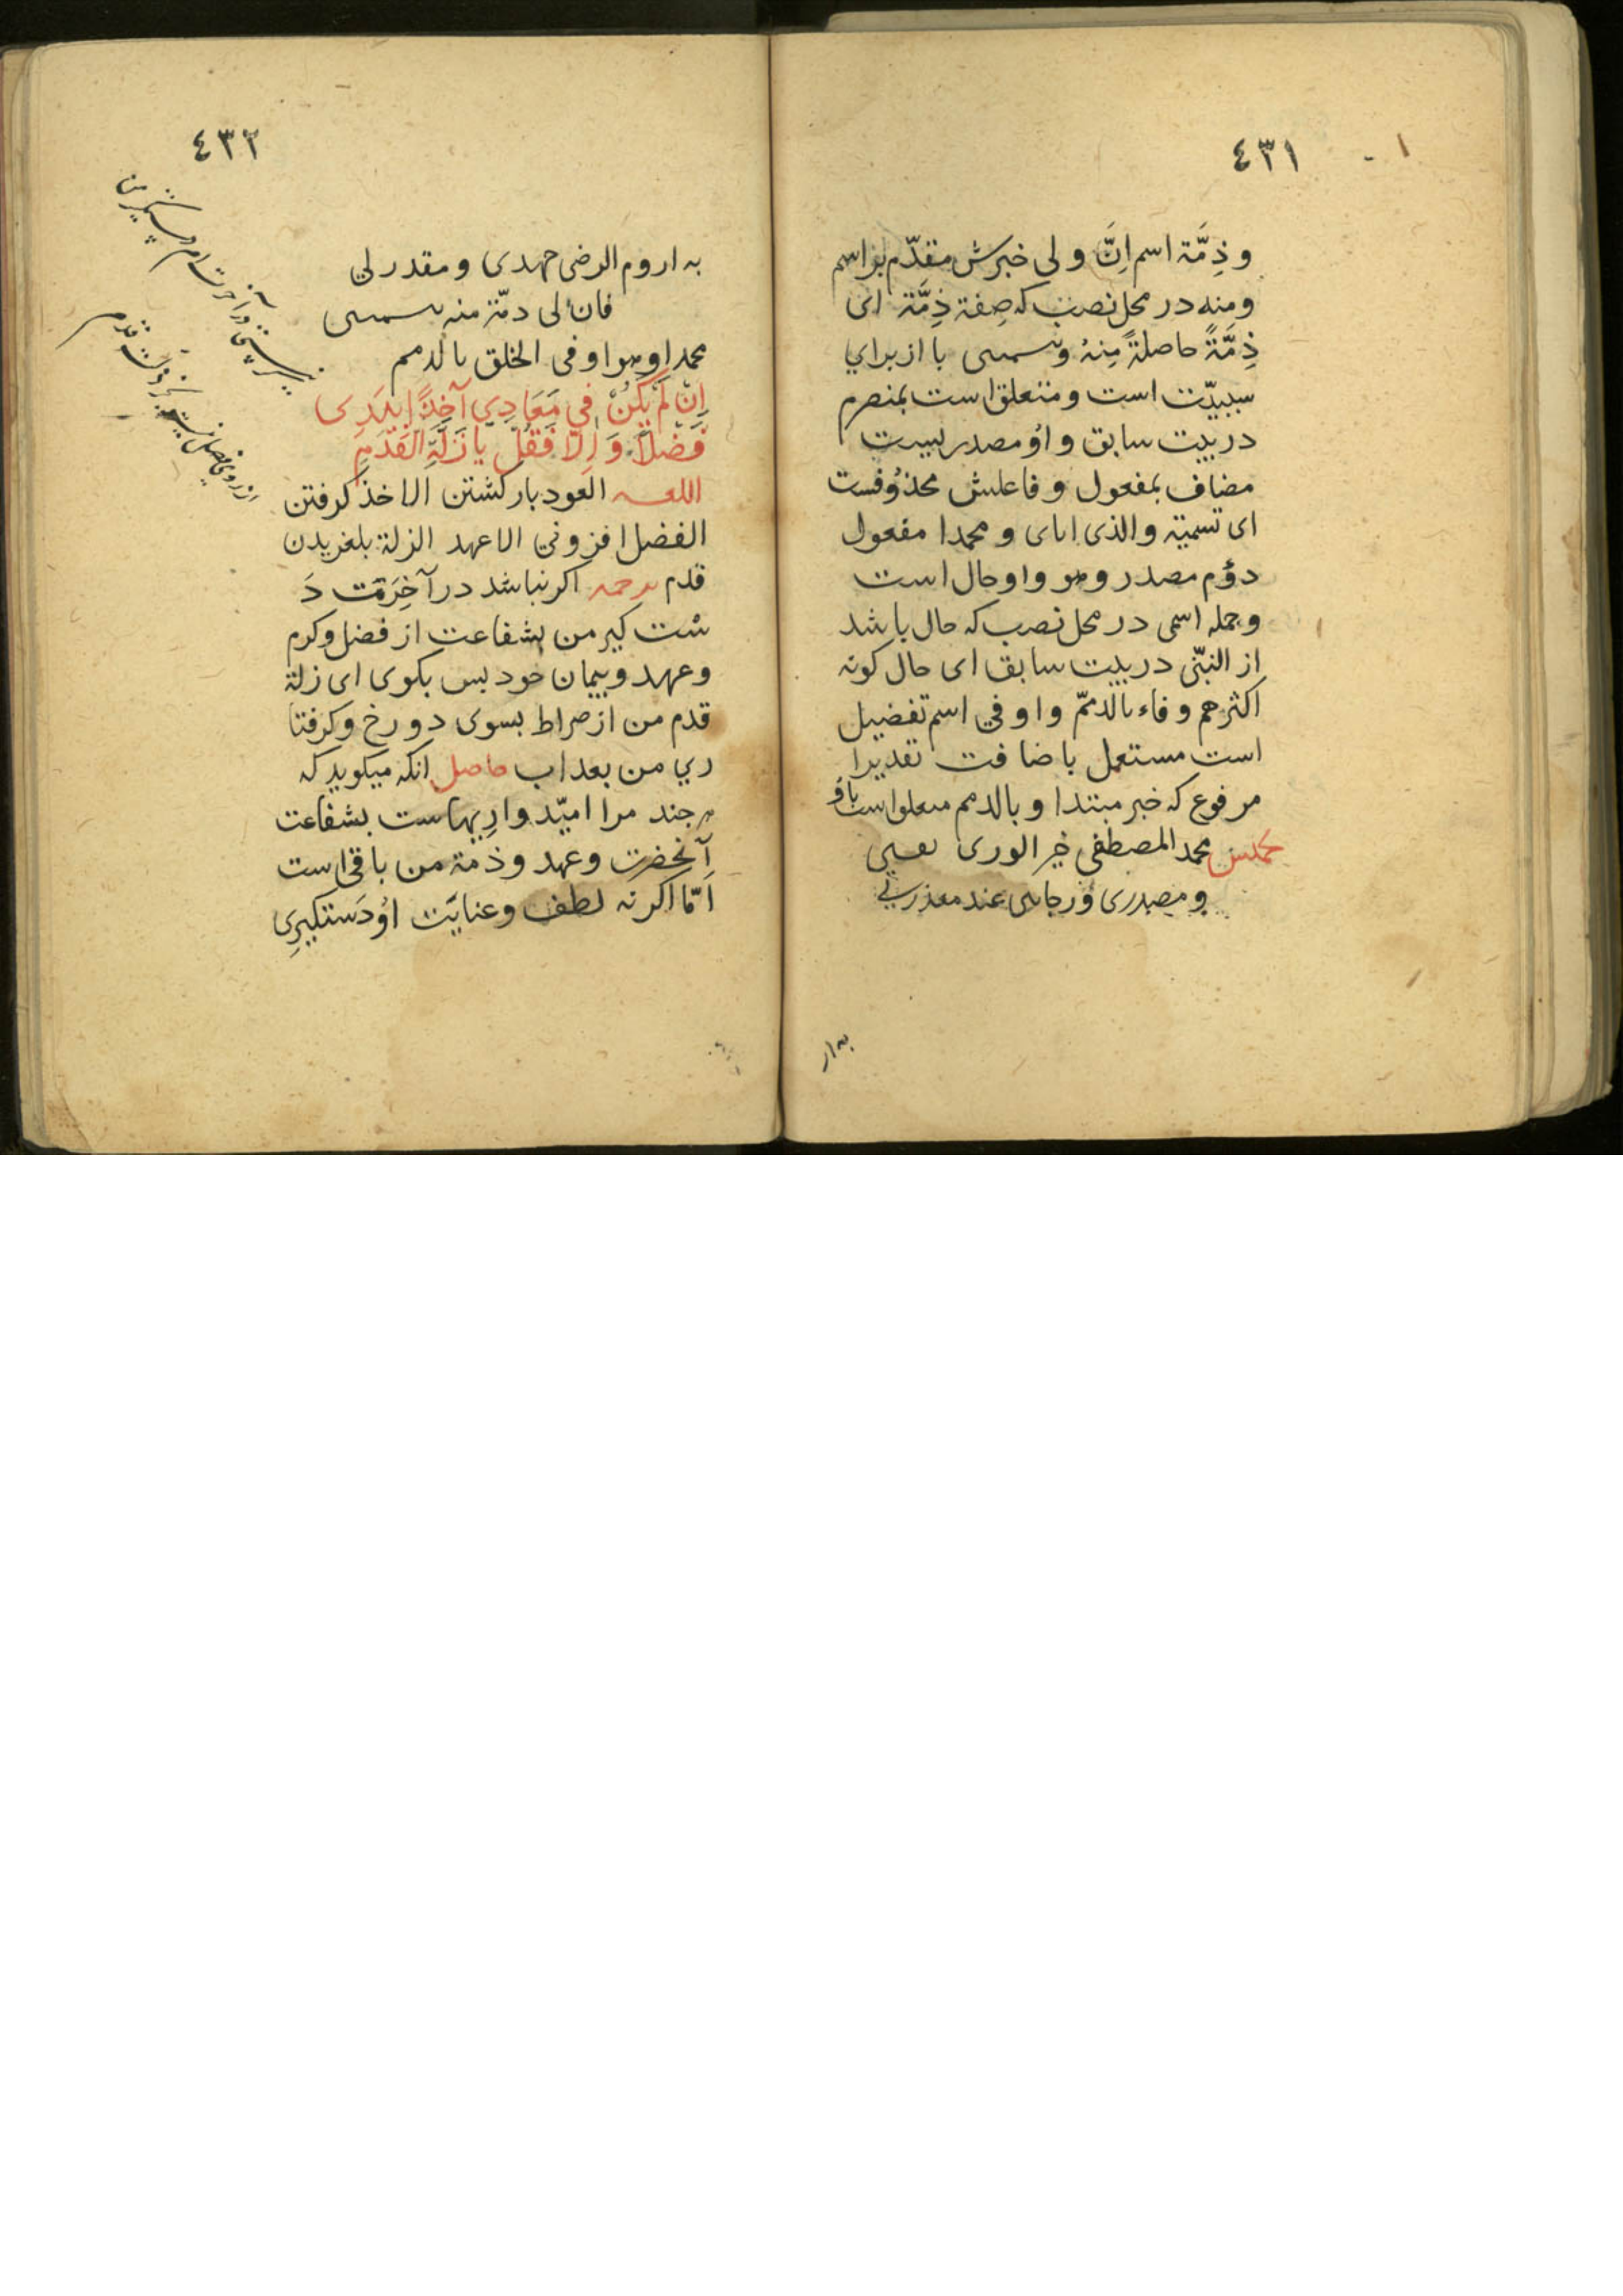 ٤٣١
و ذِمَّة اسم اِنَّ و لی خبرش مقدّم بر اسم
و منه در محل نصب که صِفة ذِمَّة ای
ذِمَّةً حاصلةً مِنهُ و با از برای
سببیّت است و متعلق است بمنصرم
در بیت سابق و اوُ مصدریست
مضاف بمفعول و فاعلش محذوُفست
ای تسمیته والذی ایای و محمدا مفعول
دوُم مصدر و هو واو حال است
و جمله اسمی در محل نصب که حال باشد
از النبّی در بیت سابق ای حال کونه
اکثرهم وفاء بالذممّ و اوفی اسم تفضیل
است مستعمل باضافت تقدیرا
مرفوع که خبر مبتدا و بالذمم است
محمد المصطفی خیر الوری
و مصدری وُرجائی عند معذرتی
به ار
٤٣٢
به اروم الرضی و مقدر
فان لی ذمّة منه
محمدا و هو اوفی الخلق بالذمم
اِنْ لَمْ یَکُنْ فِی مَعَادِی آخِذًا بِیَدِی
فَضْلًا وَ اِلّا فَقُلْ یَا زَلَّةَ الْقَدَمِ
اللغه العود بازکشتن الاخذ کرفتن
الفضل افزونی الا عهد الزلة بلغزیدن
قدم ترجمه اکر نباشد در آخِرَتت دَ
ست کیر من بشفاعت از فضل و کرم
و عهد و پیمان خود بس بکوی ای زلة
قدم من از صراط بسوی دوزخ و کرفتا
ری من بعذاب حاصل انکه میکوید که
هر جند مرا امیّد واریهاست بشفاعت
آنحضرت و عهد و ذمة من باقی است
اَمّا اکر نه لطف و عنایَت اوُ دَستکیرِی